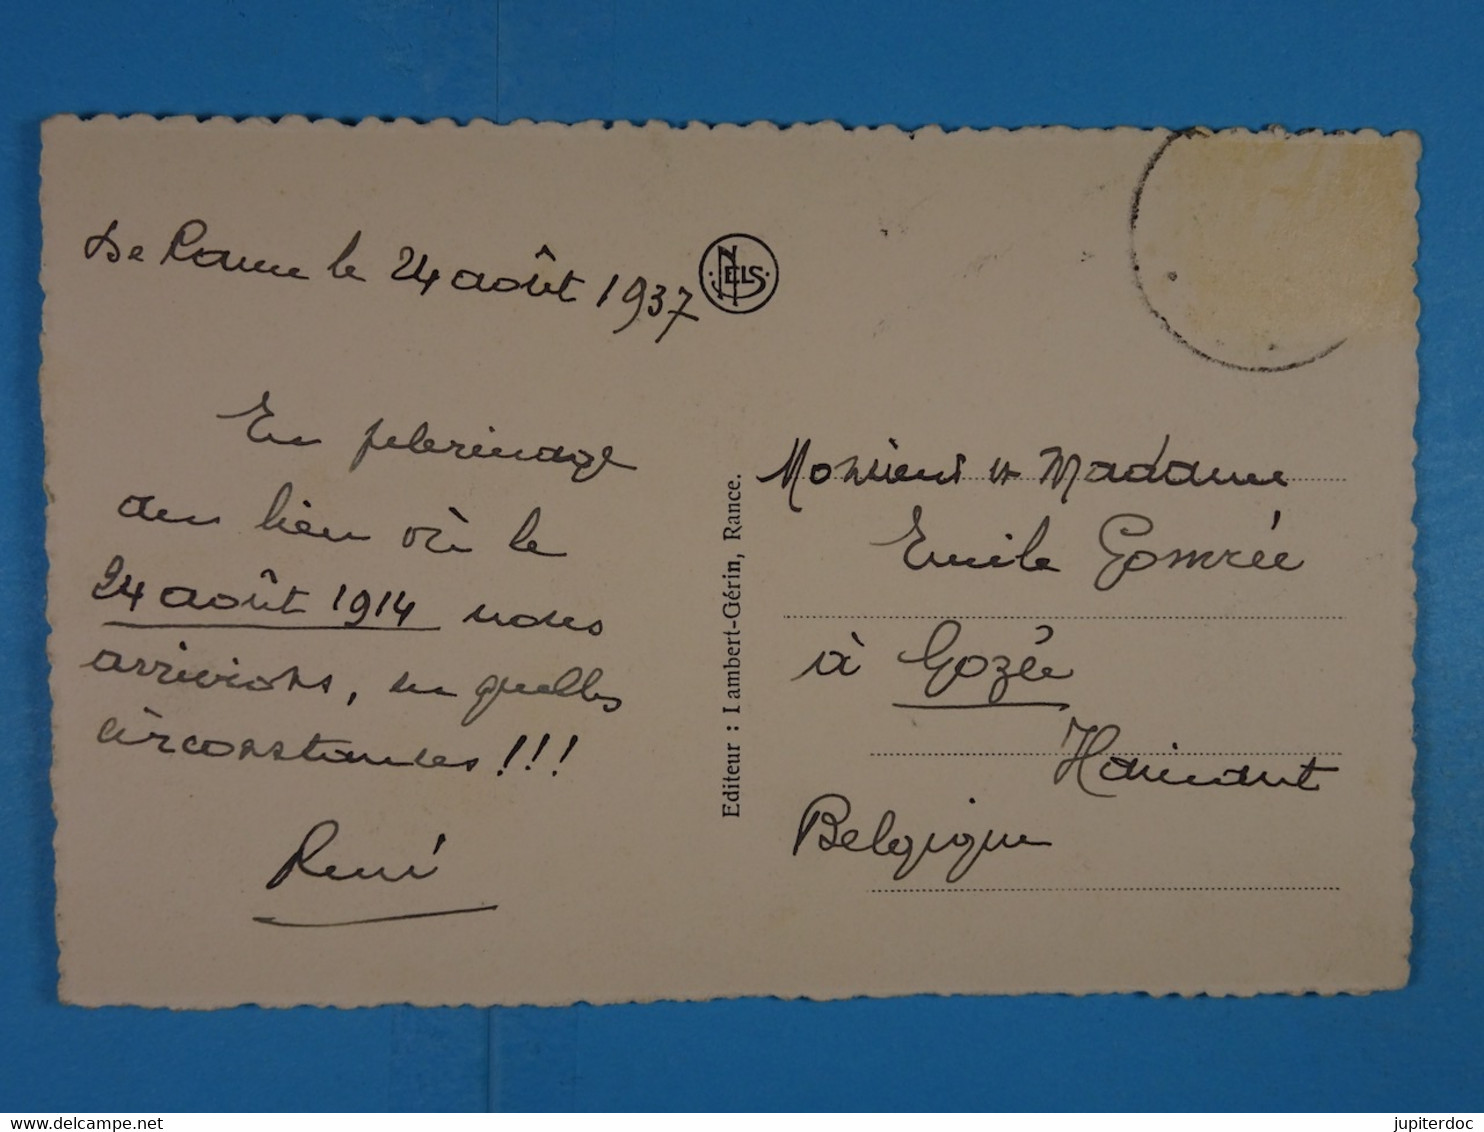 De Rance le 24 août 1937
En pelerinage
au lieu où le
24 août 1914 nous
arrivions, en quelles
circonstances !!!
René
NELS
Editeur : Lambert-Gérin, Rance.
Monsieur et Madame
Emile Gomrée
à Gozée
Hainaut
Belgique
delcampe.net
jupiterdoc